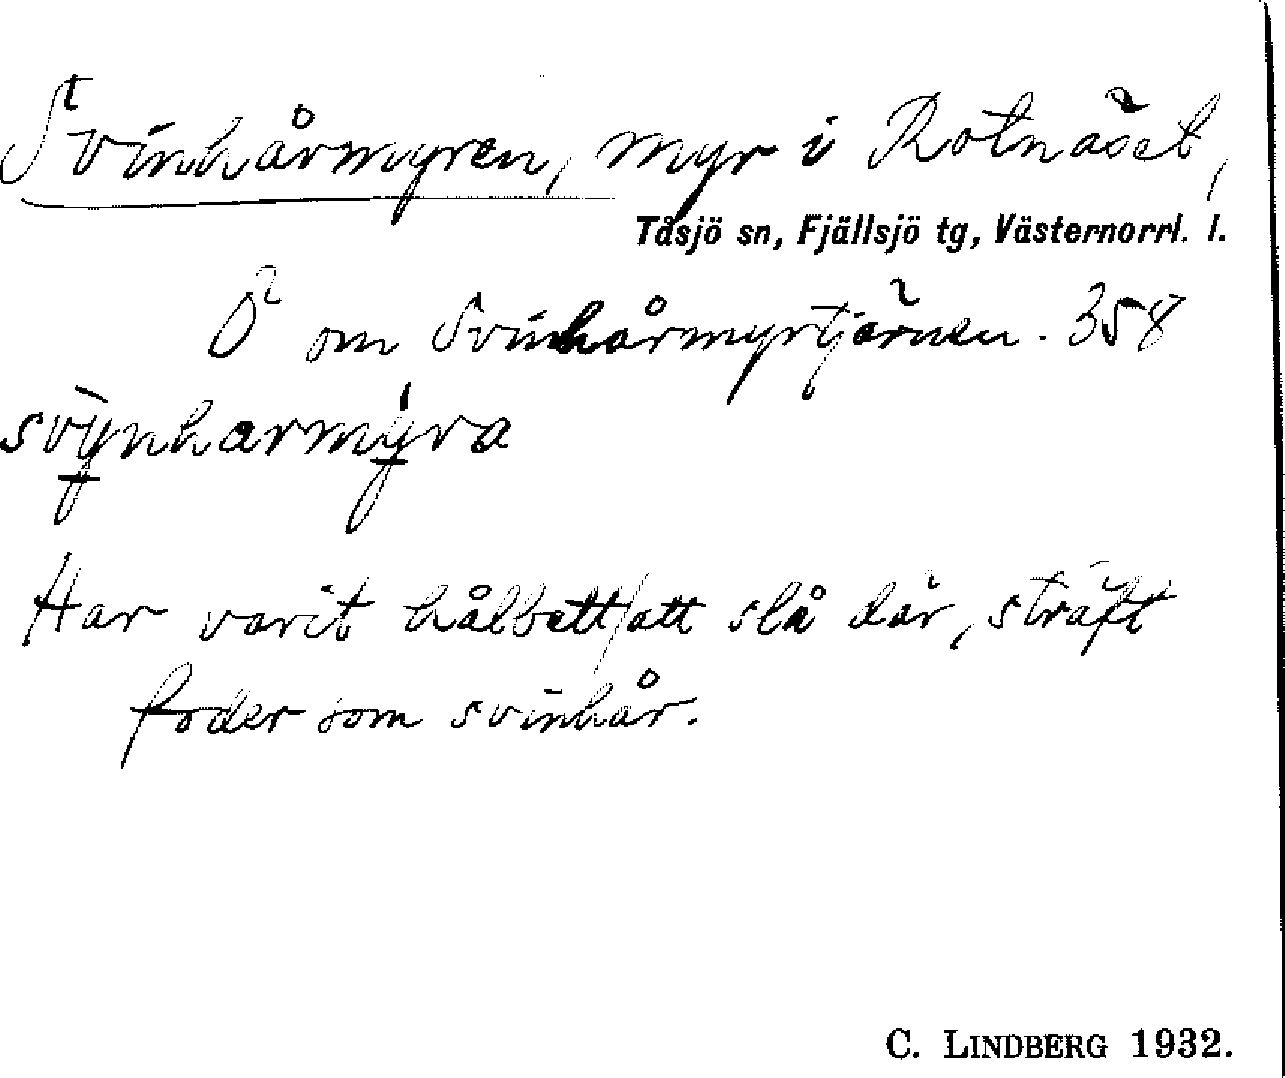 Svinhårmyren, myr i Rotnäset,
Tåsjö sn, Fjällsjö tg, Västernorrl. l.
Ö om Svinhårmyrtjärnen. 358
svynharmyra
Har varit hålbett att slå där, sträft
foder som svinhår.
C. LINDBERG 1932.